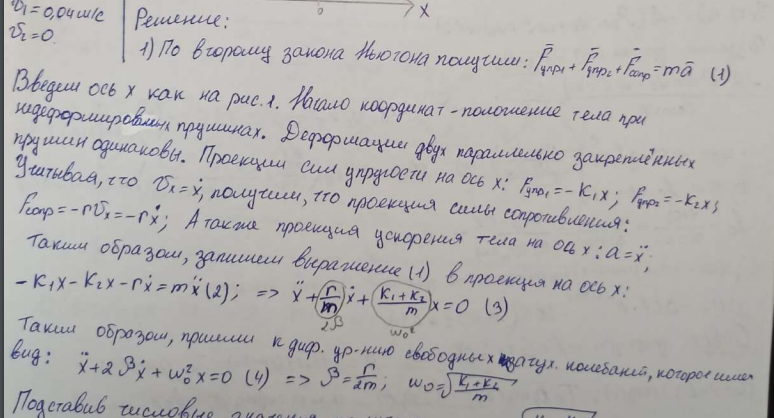 v₁=0,04м/с
v₂=0
x
Решение:
1) По второму закона Ньютона получим: F̄упр₁ + F̄упр₂ + F̄сопр = mā (1)
Введем ось x как на рис.1. Начало координат - положение тела при
недеформированных пружинах. Деформации двух параллельно закреплённых
пружин одинаковы. Проекции сил упругости на ось x: Fупр₁ = -K₁x; Fупр₂ = -K₂x;
Учитывая, что vₓ = ẋ, получим, что проекция силы сопротивления:
Fсопр = -rvₓ = -rẋ; А также проекция ускорения тела на ось x: a = ẍ;
Таким образом, запишем выражение (1) в проекция на ось x:
-K₁x - K₂x - rẋ = mẍ (2); => ẍ + r/m ẋ + (K₁+K₂)/m x = 0 (3)
2β ω₀²
Таким образом, пришли к диф. ур-нию свободных затух. колебаний, которое имеет
вид: ẍ + 2βẋ + ω₀²x = 0 (4) => β = r/2m; ω₀ = √((K₁+K₂)/m)
Подставив числовые